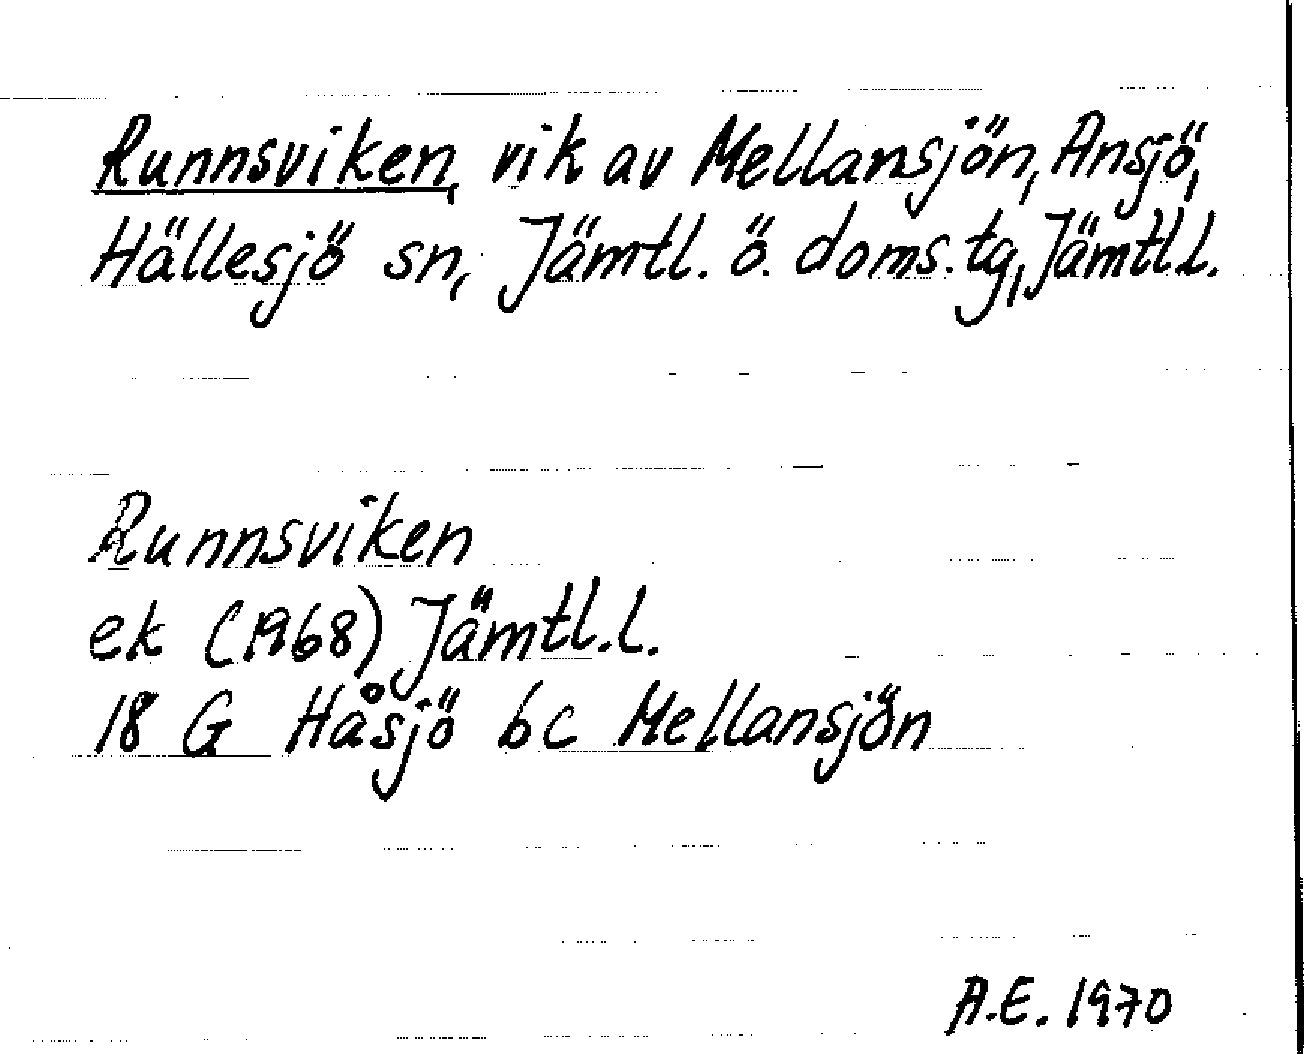 Runnsviken, vik av Mellansjön, Ansjö,
Hällesjö sn, Jämtl. ö. doms. tg, Jämtl.l.
Runnsviken
ek (1968) Jämtl.l.
18 G Håsjö bc Mellansjön
A.E. 1970